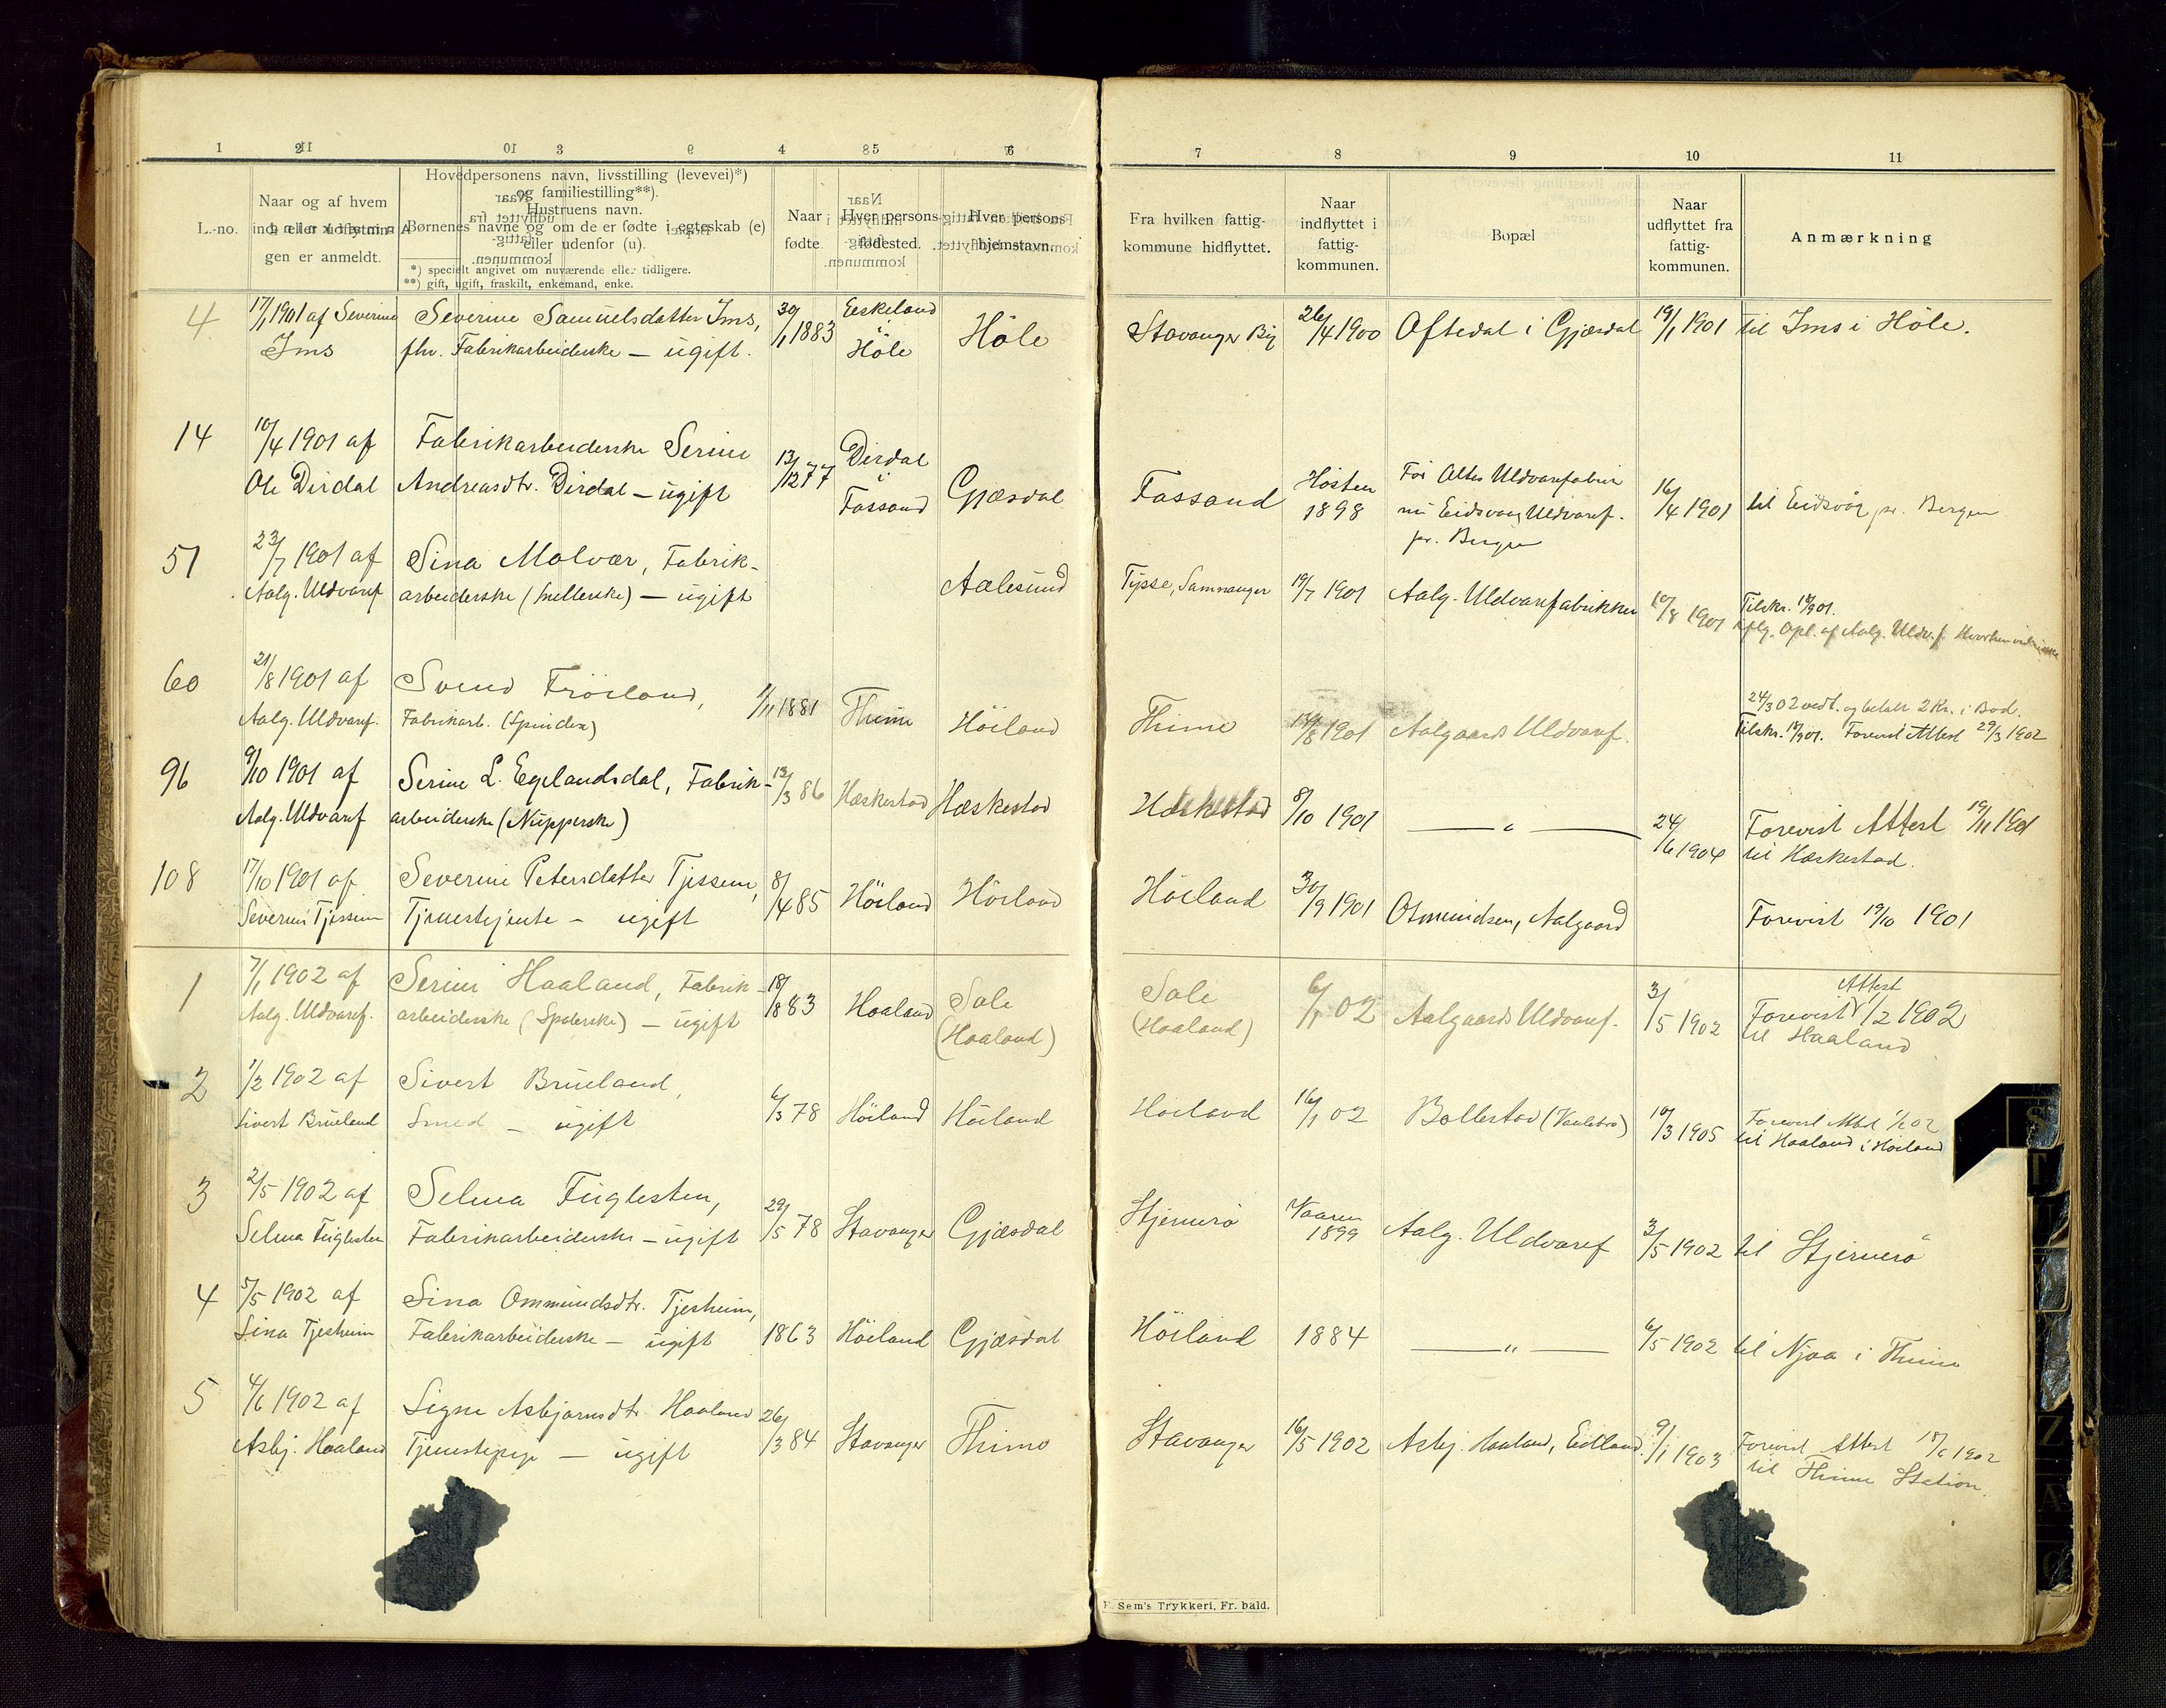 1 2 3 4 5 6 7 8 9 10 11
L.-no.
Naar og af hvem ind- eller udflytningen er anmeldt.
Hovedpersonens navn, livsstilling (levevei)*)
og familiestilling**).
Hustruens navn.
Børnenes navne og om de er fødte i egteskab (e)
eller udenfor (u).
*) specielt angivet om nuværende eller tidligere.
**) gift, ugift, fraskilt, enkemand, enke.
Naar fødte.
Hver persons fødested.
Hver persons hjemstavn.
Fra hvilken fattigkommune hidflyttet.
Naar indflyttet i fattigkommunen.
Bopæl
Naar udflyttet fra fattigkommunen.
Anmærkning
4 17/1 1901 af Severine Severine Samuelsdatter Ims, 30/1 1883 Eeskeland Höle Stavanger By 26/4 1900 Oftedal i Gjæsdal 19/1 1901 til Ims i Höle.
Ims fhv. Fabrikarbeiderske — ugift. Höle
14 10/4 1901 af Fabrikarbeiderske Serine 13/12 77 Dirdal Gjæsdal Fossand Høsten Før Oltes Uldvarefabrik 16/4 1901 til Eidsvåg pr. Bergen
Ole Dirdal Andreasdtr. Dirdal — ugift Fossand 1898 nu Eidsvaag Uldvaref.
pr. Bergen
51 23/7 1901 af Sina Molvær, Fabrik- Aalesund Tysse, Samnanger 19/7 1901 Aalg. Uldvarefabrikker 10/8 1901 Tilskr.
Aalg. Uldvaref arbeiderske — ugift Opl. af Aalg. Uldv.f.
60 21/8 1901 af Svend Fröiland, 1/11 1881 Thime Höiland Thime 17/8 1901 Aalgaards Uldvaref. 24/3 02 vedt. og betalt 2 Kr. i Bod.
Aalg. Uldvaref. Fabrikarb. (Spinder) Tilskr. Forevist Attest 29/3 1902
96 9/10 1901 af Serine L. Egelandsdal, Fabrik- 12/3 86 Hæskestad Hæskestad Hæskestad 8/10 1901 — " — 24/6 1904 Forevist Attest 19/11 1901
Aalg. Uldvaref arbeiderske (Nupperske) til Hæskestad.
108 17/10 1901 af Severine Petersdatter Tjessem, 8/4 85 Höiland Höiland Höiland 30/9 1901 Osmundsen, Aalgaard Forevist 19/10 1901
Severine Tjessem Tjenestejente — ugift
1 7/1 1902 af Serine Haaland, Fabrik- 18/8 83 Haaland Sole Sole 6/1 02 Aalgaards Uldvaref. 3/5 1902 Forevist Attest 1/2 1902
Aalg. Uldvaref. arbeiderske (Spolerske) — ugift (Haaland) (Haaland) til Haaland
2 1/2 1902 af Sivert Brueland, 6/3 78 Höiland Höiland Höiland 16/1 02 Bollestad 10/3 1905 Forevist Attest 1/2 02
Sivert Brueland Smed — ugift til Haaland i Höiland
3 2/5 1902 af Selma Fuglesten, 29/5 78 Stavanger Gjæsdal Stjernerö Vaaren 1899 Aalg. Uldvaref 3/5 1902 til Stjernerö
Selma Fuglesten Fabrikarbeiderske — ugift
4 5/5 1902 af Sina Ommundsdtr. Tjesheim, 1863 Höiland Gjæsdal Höiland 1884 — " — 6/5 1902 til Njaa i Thime
Sina Tjesheim Fabrikarbeiderske — ugift
5 4/6 1902 af Signe Asbjørnsdtr. Haaland 26/3 84 Stavanger Thime Stavanger 16/5 1902 Asbj. Haaland, Eidland 9/1 1903 Forevist Attest 1902
Asbj. Haaland Tjenestepige — ugift til Thime Station.
E. Sem's Trykkeri, Fr. hald.